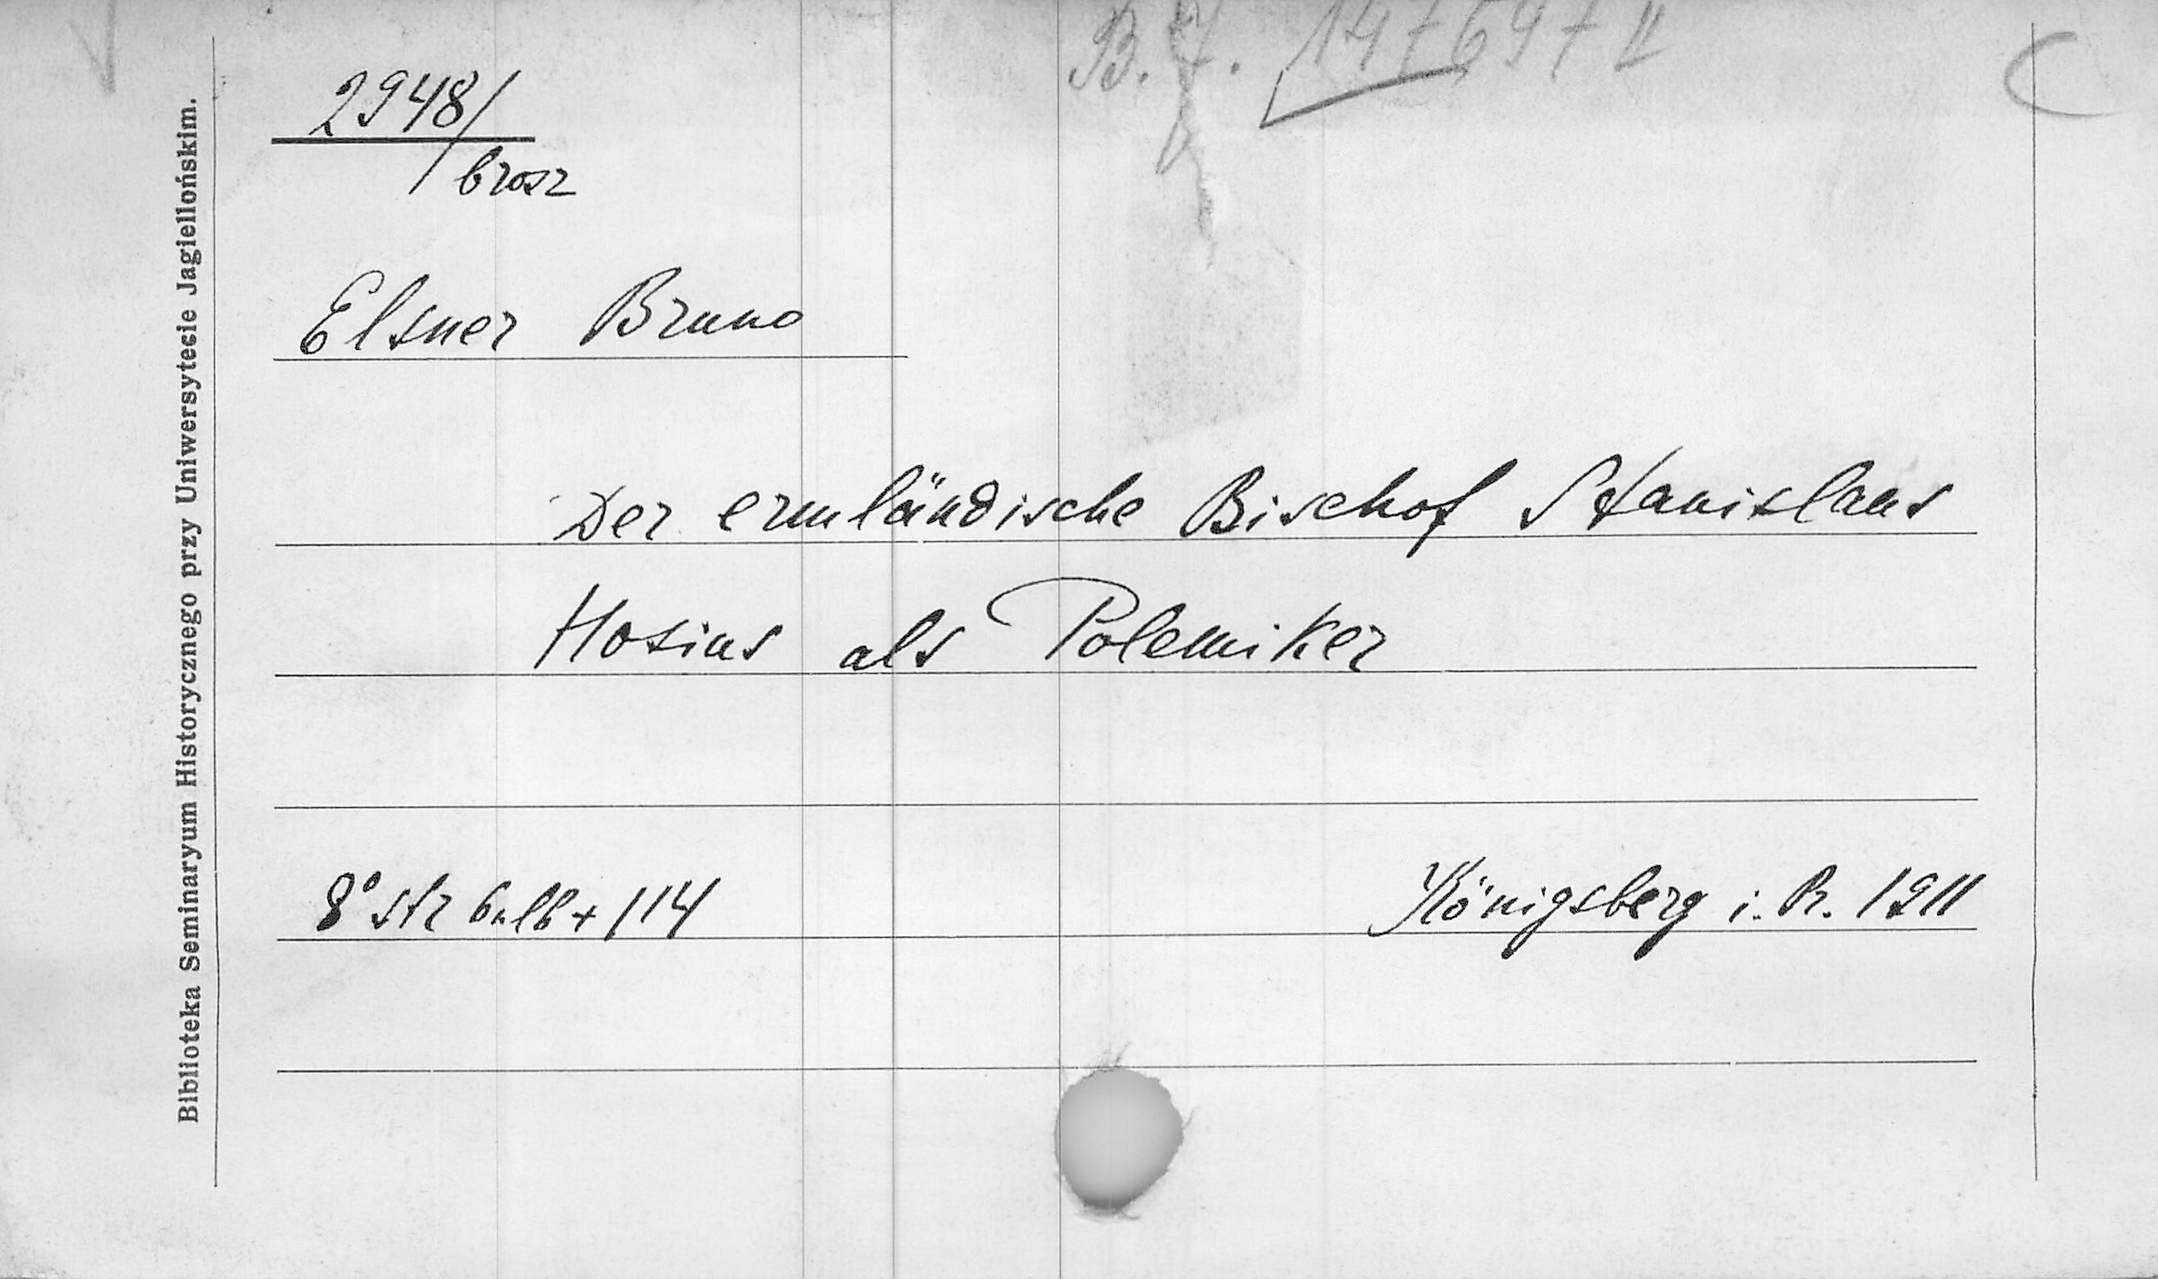 B. J. 147697 II
2948/
brosz
Elsner Bruno
Der ermländische Bischof Stanislaus
Hosius als Polemiker
8° str 6nlb + 114
Königsberg i. P. 1911
Biblioteka Seminaryum Historycznego przy Uniwersytecie Jagiellońskim.